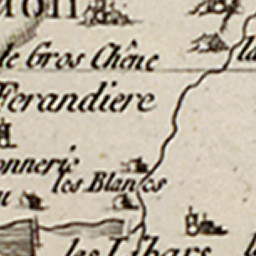 le Gros Chêne
la
Ferandiere
onnerie
les Blancs
les Libars